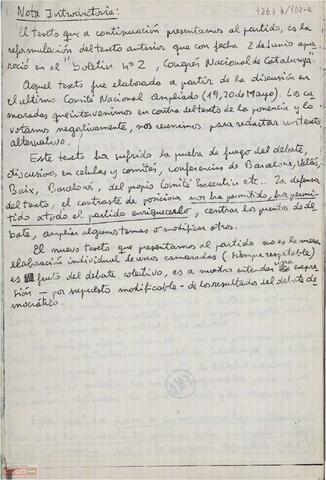 Nota Introductoria:
1262 3/102-a
El texto que a continuación presentamos al partido, es la
reformulación del texto anterior que con fecha 2 de junio apa-
reció en el "boletín nº 2, Congrés Nacional de Catalunya.
Aquel texto fue elaborado a partir de la discusión en
el último Comité Nacional Ampliado (19, 20 de Mayo). Los ca-
maradas que intervenimos en contra del texto de la ponencia y lo
votamos negativamente, nos reunimos para redactar un texto
alternativo.
Este texto ha sufrido la prueba de fuego del debate,
discusiones en células y comités, conferencias de Barcelona, Vallés,
Baix, Barcelona, del propio Comité Executiu etc... La defensa
del texto, el contraste de posiciones nos ha permitido, ha permi-
tido a todo el partido enriquecerlo, centrar los puntos de de-
bate, ampliar algunos temas o modificar otros.
El nuevo texto que presentamos al partido no es la mera
elaboración individual de unos camaradas (siempre respetable)
es fruto del debate colectivo, es a nuestro entender una expre-
sión — por supuesto modificable — de los resultados del debate de-
mocrático.